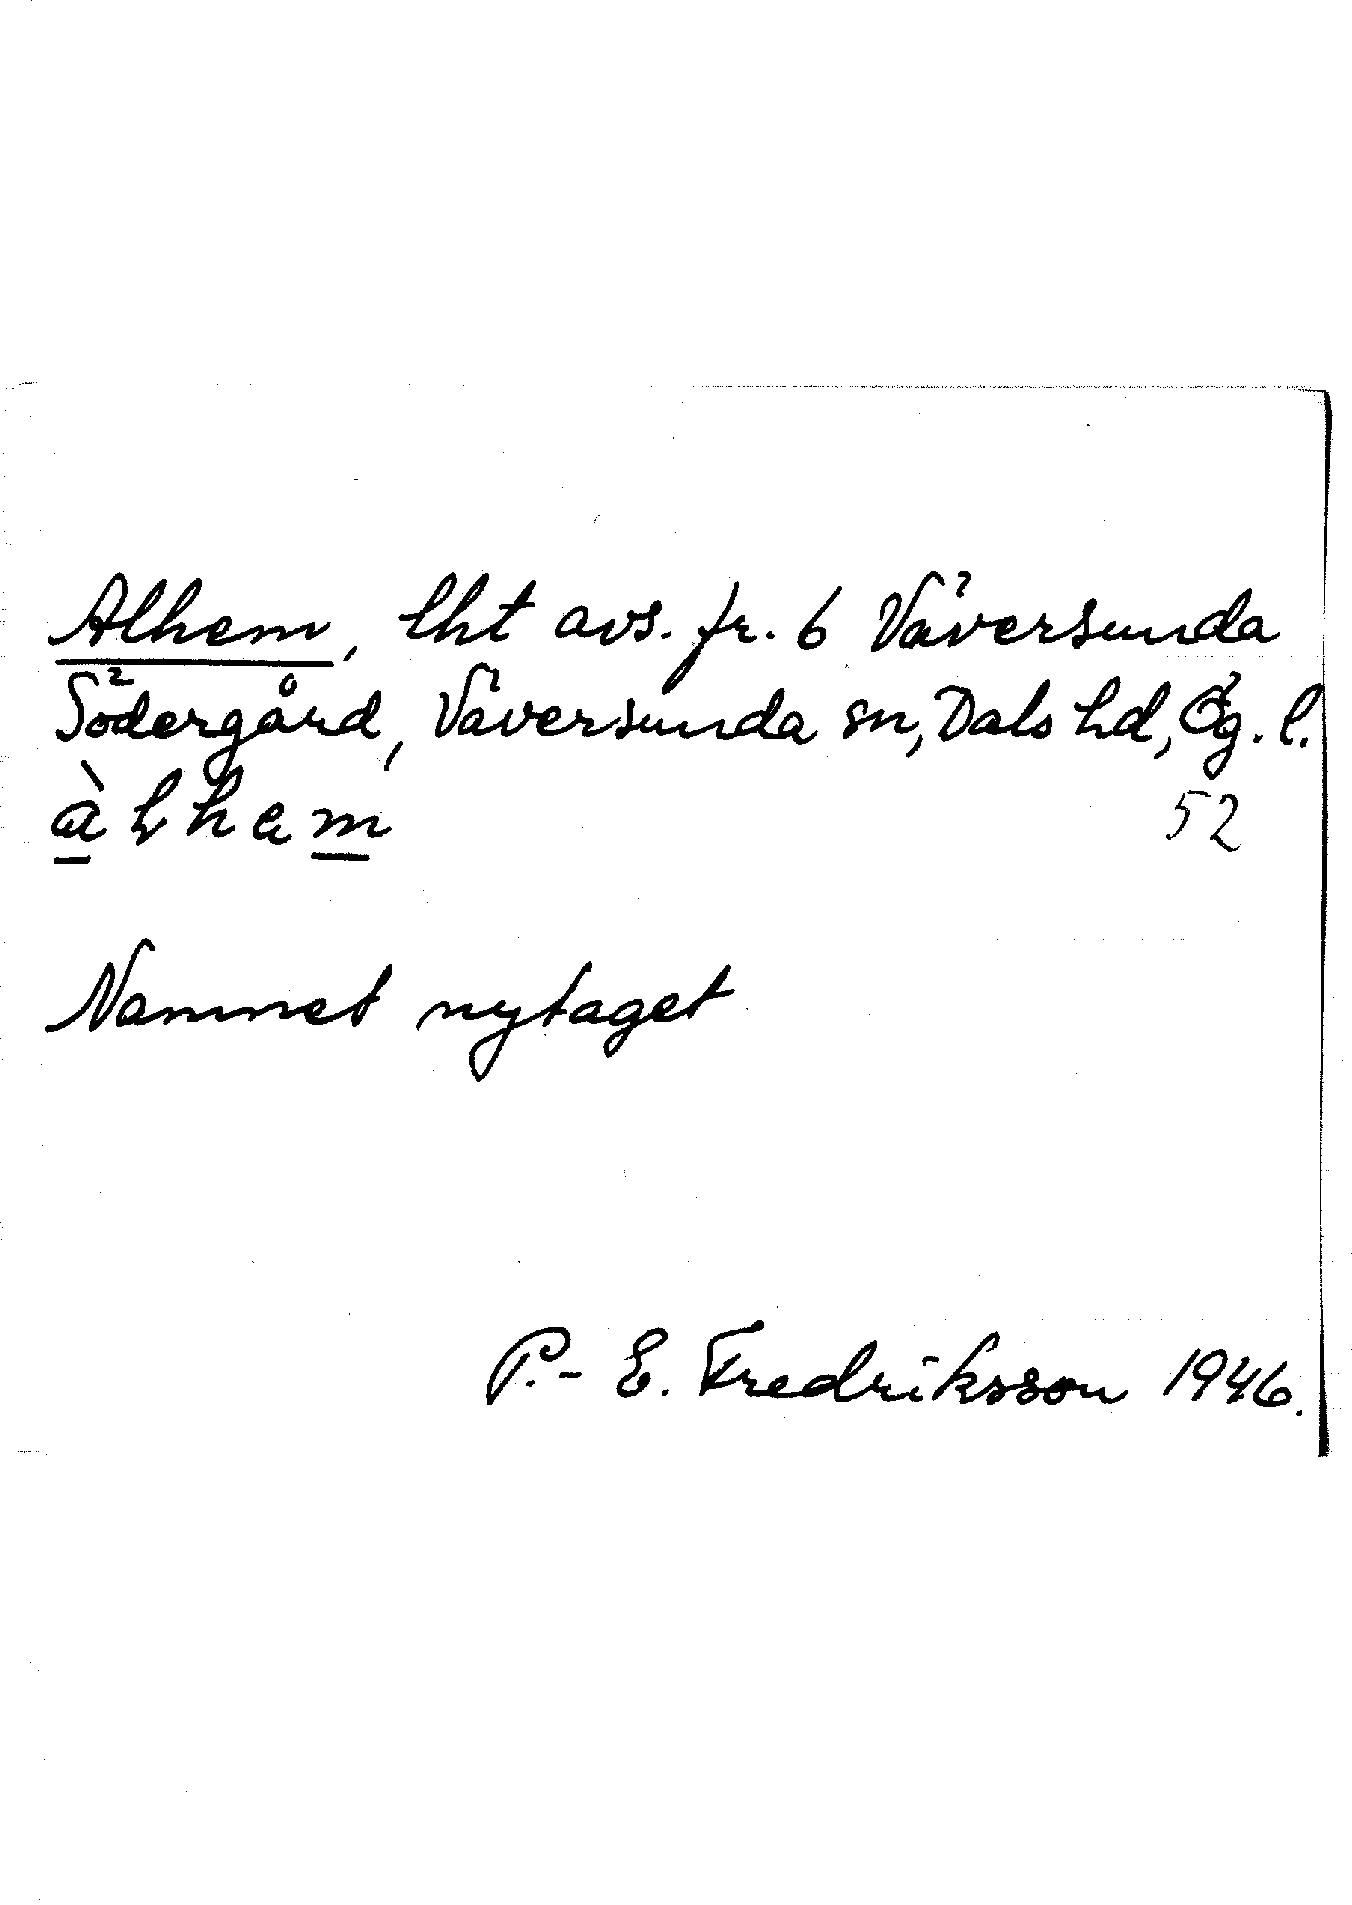 Alhem, lht avs. fr. 6 Väversunda
Södergård, Väversunda sn, Dals hd, Ög. l.
àlhem 52
Namnet nytaget
P.-E. Fredriksson 1946.